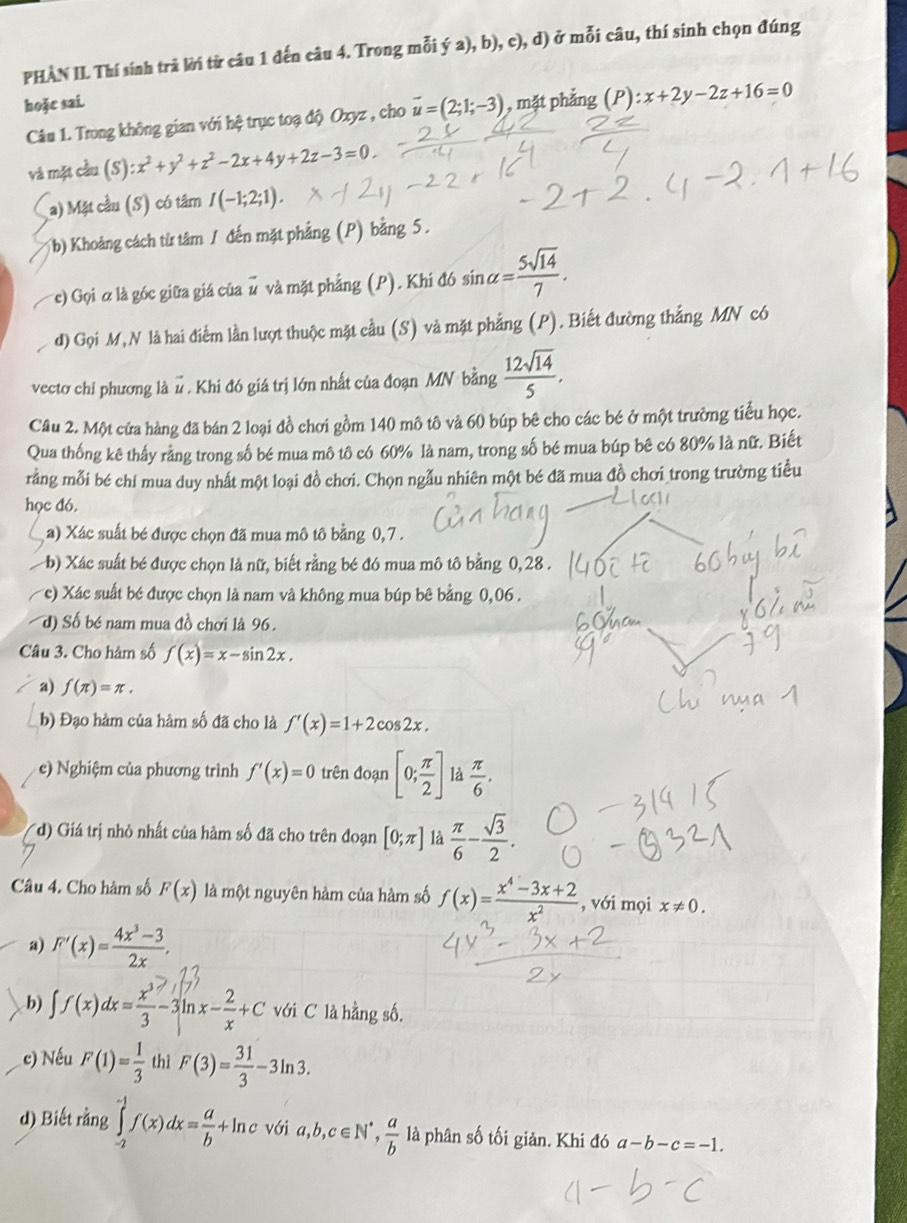 PHẦN II. Thí sinh trả lời từ câu 1 đến câu 4. Trong mỗi ý a), b), c), d) ở mỗi câu, thí sinh chọn đúng
hoặc sai.
Câu 1. Trong không gian với hệ trục toạ độ Oxyz , cho $\vec{u}=(2;1;-3)$, mặt phẳng $(P): x+2y-2z+16=0$
và mặt cầu $(S): x^2+y^2+z^2-2x+4y+2z-3=0$.
x + 2y - 2z + 16
-2 + 2 . 4 - 2 . 1 + 16
a) Mặt cầu (S) có tâm $I(-1;2;1)$.
b) Khoảng cách từ tâm I đến mặt phẳng (P) bằng 5 .
c) Gọi α là góc giữa giá của $\vec{u}$ và mặt phẳng (P). Khi đó $\sin\alpha=\frac{5\sqrt{14}}{7}$.
d) Gọi M,N là hai điểm lần lượt thuộc mặt cầu (S) và mặt phẳng (P). Biết đường thẳng MN có
vectơ chỉ phương là $\vec{u}$. Khi đó giá trị lớn nhất của đoạn MN bằng $\frac{12\sqrt{14}}{5}$.
Câu 2. Một cửa hàng đã bán 2 loại đồ chơi gồm 140 mô tô và 60 búp bê cho các bé ở một trường tiểu học.
Qua thống kê thấy rằng trong số bé mua mô tô có 60% là nam, trong số bé mua búp bê có 80% là nữ. Biết
rằng mỗi bé chỉ mua duy nhất một loại đồ chơi. Chọn ngẫu nhiên một bé đã mua đồ chơi trong trường tiểu
học đó.
Cửa hàng 2 loại
a) Xác suất bé được chọn đã mua mô tô bằng 0,7 .
b) Xác suất bé được chọn là nữ, biết rằng bé đó mua mô tô bằng 0,28 .
c) Xác suất bé được chọn là nam và không mua búp bê bằng 0,06 .
d) Số bé nam mua đồ chơi là 96 .
Câu 3. Cho hàm số $f(x)=x-\sin 2x$.
a) $f(\pi)=\pi$.
Chỉ mua 1
b) Đạo hàm của hàm số đã cho là $f'(x)=1+2\cos 2x$.
c) Nghiệm của phương trình $f'(x)=0$ trên đoạn $\left[0;\frac{\pi}{2}\right]$ là $\frac{\pi}{6}$.
d) Giá trị nhỏ nhất của hàm số đã cho trên đoạn $[0;\pi]$ là $\frac{\pi}{6}-\frac{\sqrt{3}}{2}$.
Câu 4. Cho hàm số $F(x)$ là một nguyên hàm của hàm số $f(x)=\frac{x^4-3x+2}{x^2}$, với mọi $x\neq 0$.
a) $F'(x)=\frac{4x^3-3}{2x}$.
$\frac{4x^3-3x+2}{2x}$
b) $\int f(x)dx=\frac{x^3}{3}-3\ln x-\frac{2}{x}+C$ với C là hằng số.
c) Nếu $F(1)=\frac{1}{3}$ thì $F(3)=\frac{31}{3}-3\ln 3$.
d) Biết rằng $\int_{-2}^{-1} f(x)dx=\frac{a}{b}+\ln c$ với $a,b,c\in\mathbb{N}^*$, $\frac{a}{b}$ là phân số tối giản. Khi đó $a-b-c=-1$.
a - b - c